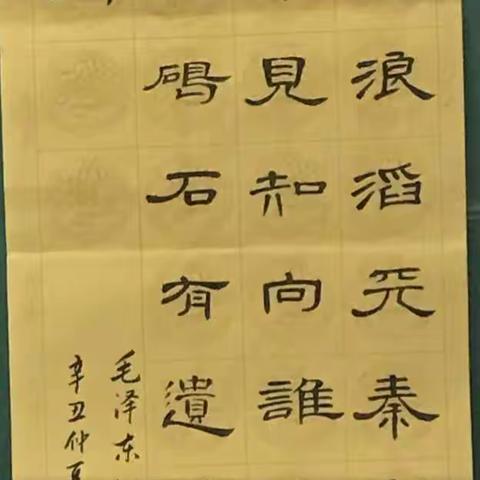 浪滔天秦
見知向誰
碣石有遺
毛泽东
辛丑仲夏